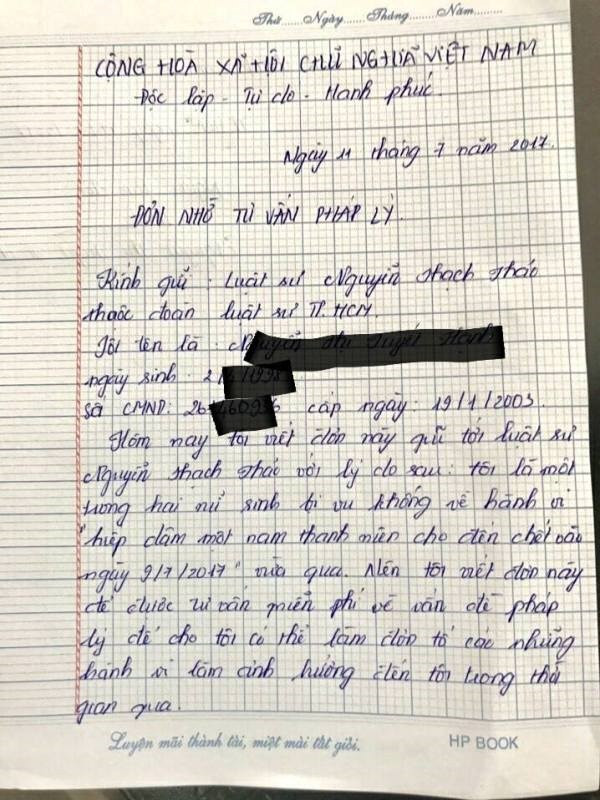 Thứ.......Ngày.......Tháng.......Năm.........
CỘNG HOÀ XÃ HỘI CHỦ NGHĨA VIỆT NAM
Độc lập - Tự do - Hạnh phúc.
Ngày 11 tháng 7 năm 2017.
ĐƠN NHỜ TƯ VẤN PHÁP LÝ.
Kính gửi : Luật sư Nguyễn Thạch Thảo
thuộc đoàn luật sư TP. HCM.
Tôi tên là :
ngày sinh : 2
số CMND: 26 6 cấp ngày: 19/1/2003.
Hôm nay tôi viết đơn này gửi tới luật sư
Nguyễn Thạch Thảo với lý do sau: tôi là một
trong hai nữ sinh bị vu khống về hành vi
"hiếp dâm một nam thanh niên cho đến chết vào
ngày 9/7/2017" vừa qua. Nên tôi viết đơn này
để được tư vấn miễn phí về vấn đề pháp
lý để cho tôi có thể làm đơn tố cáo những
hành vi làm ảnh hưởng đến tôi trong thời
gian qua.
Luyện mãi thành tài, miệt mài tất giỏi.
HP BOOK